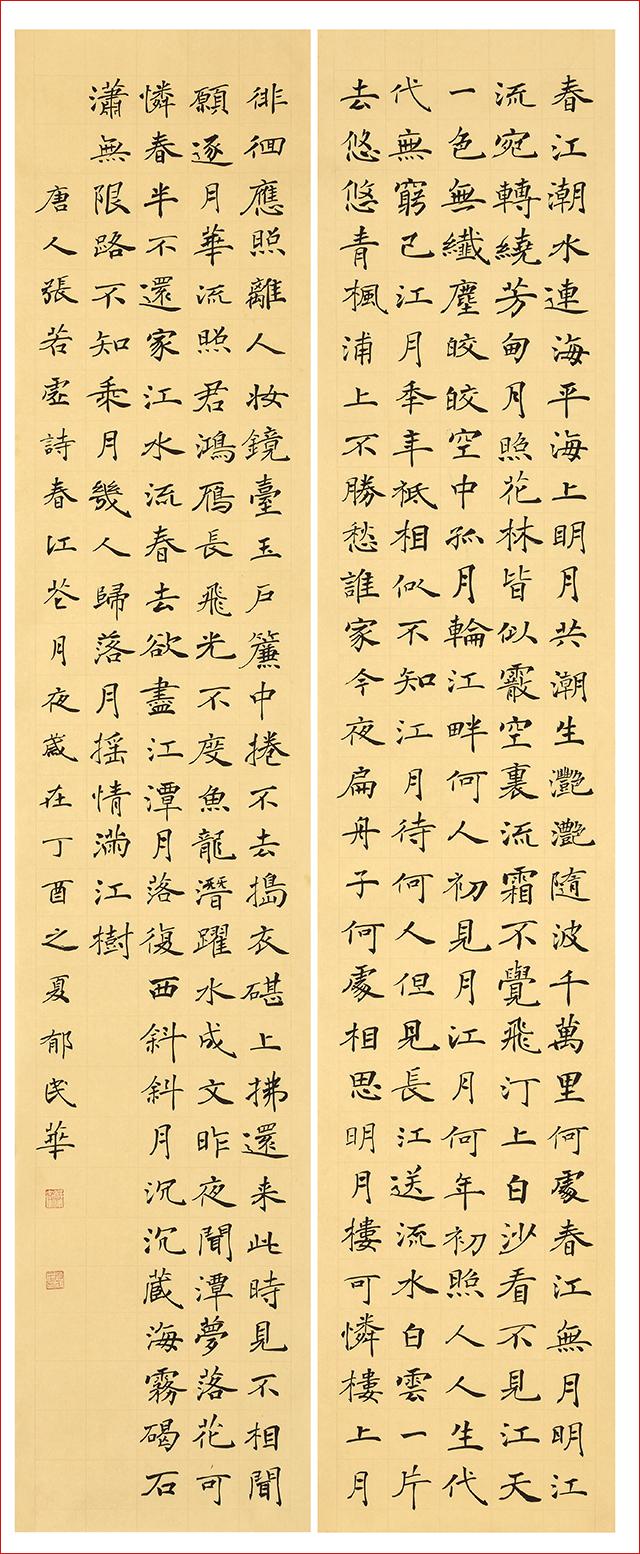 春江潮水連海平海上明月共潮生灩灩隨波千萬里何處春江無月明江
流宛轉繞芳甸月照花林皆似霰空裏流霜不覺飛汀上白沙看不見江天
一色無纖塵皎皎空中孤月輪江畔何人初見月江月何年初照人人生代
代無窮已江月年年祗相似不知江月待何人但見長江送流水白雲一片
去悠悠青楓浦上不勝愁誰家今夜扁舟子何處相思明月樓可憐樓上月
徘徊應照離人妝鏡臺玉戶簾中捲不去搗衣碪上拂還来此時見不相聞
願逐月華流照君鴻鴈長飛光不度魚龍潛躍水成文昨夜聞潭夢落花可
憐春半不還家江水流春去欲盡江潭月落復西斜斜月沉沉蔵海霧碣石
瀟無限路不知乘月幾人歸落月搖情滿江樹
唐人張若虛詩春江花月夜歲在丁酉之夏郁民華